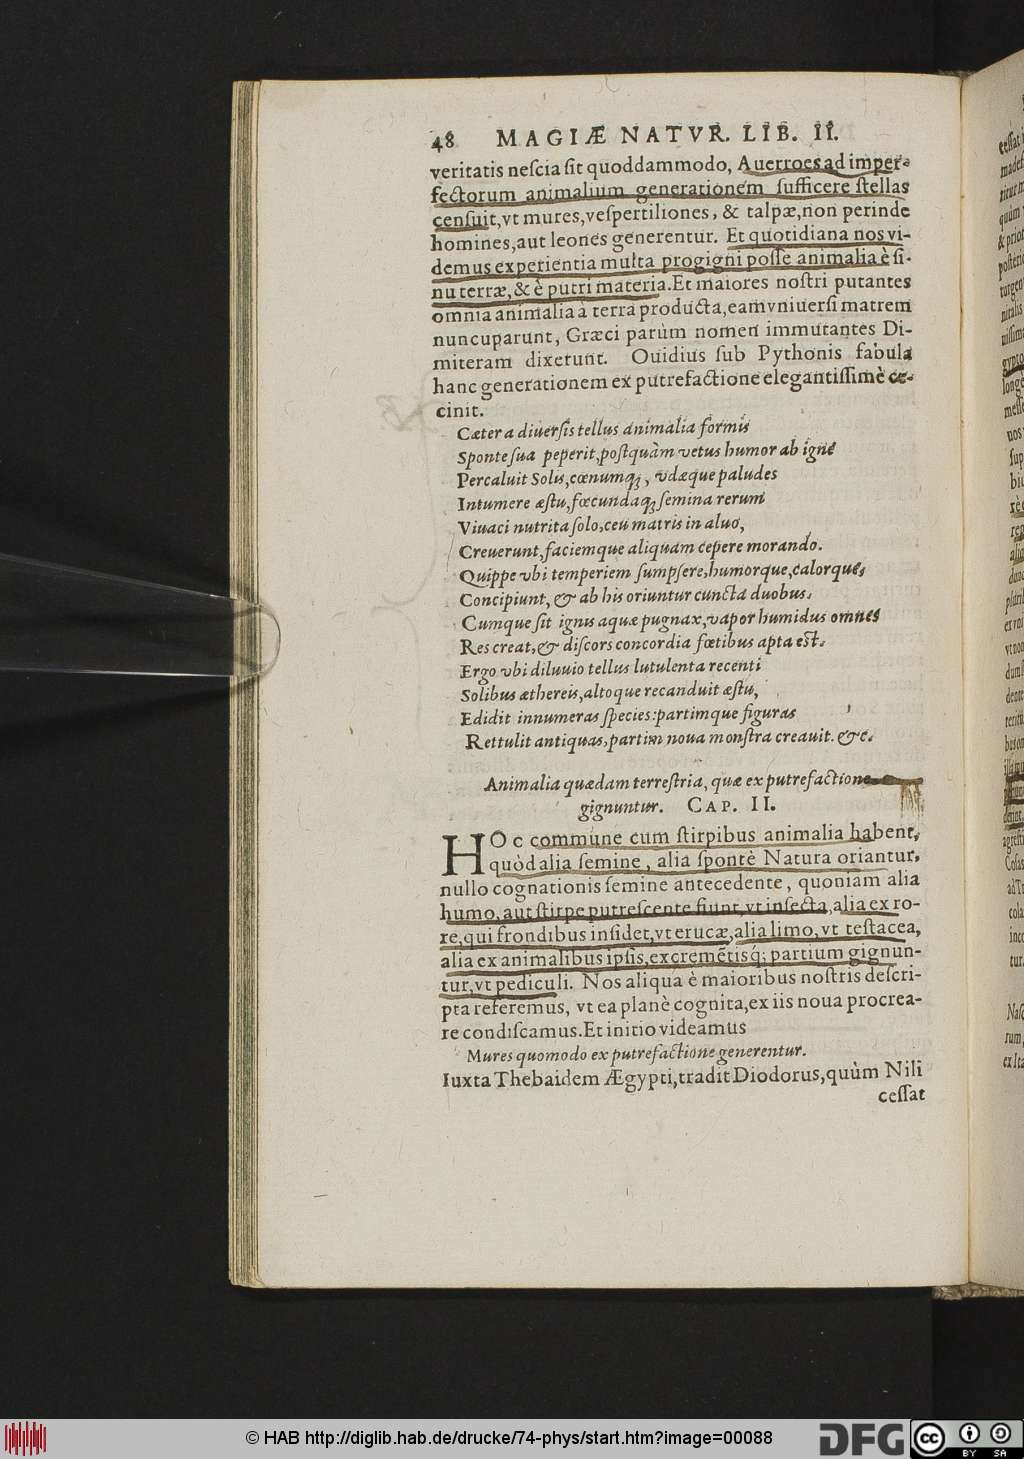 48 MAGIÆ NATVR. LIB. II.
veritatis neſcia ſit quoddammodo, Auerroes ad imper-
fectorum animalium generationem ſufficere ſtellas
cenſuit, vt mures, veſpertiliones, & talpæ, non perinde
homines, aut leones generentur. Et quotidiana nos vi-
demus experientia multa progigni poſſe animalia è ſi-
nu terræ, & è putri materia. Et maiores noſtri putantes
omnia animalia à terra producta, eam vniuerſi matrem
nuncuparunt, Græci parùm nomen immutantes Di-
miteram dixerunt. Ouidius ſub Pythonis fabula
hanc generationem ex putrefactione elegantiſſimè ce-
cinit.
Cætera diuerſis tellus animalia formis
Sponte ſua peperit, poſtquàm vetus humor ab igne
Percaluit Solis, cœnumq́;, vdæque paludes
Intumere æſtu, fœcundaq́; ſemina rerum
Viuaci nutrita ſolo, ceu matris in aluo,
Creuerunt, faciemque aliquam cepere morando.
Quippe vbi temperiem ſumpſere, humorque, calorque,
Concipiunt, & ab his oriuntur cuncta duobus.
Cumque ſit ignis aquæ pugnax, vapor humidus omnes
Res creat, & diſcors concordia fœtibus apta eſt.
Ergo vbi diluuio tellus lutulenta recenti
Solibus æthereis, altoque recanduit æſtu,
Edidit innumeras ſpecies: partimque figuras
Rettulit antiquas, partim noua monſtra creauit. &c.
Animalia quædam terreſtria, quæ ex putrefactione
gignuntur. CAP. II.
HOc commune cum ſtirpibus animalia habent,
quòd alia ſemine, alia ſpontè Natura oriantur,
nullo cognationis ſemine antecedente, quoniam alia
humo, aut ſtirpe putreſcente fiunt, vt inſecta, alia ex ro-
re, qui frondibus inſidet, vt erucæ, alia limo, vt teſtacea,
alia ex animalibus ipſis, excremẽtisq́; partium gignun-
tur, vt pediculi. Nos aliqua è maioribus noſtris deſcri-
pta referemus, vt ea planè cognita, ex iis noua procrea-
re condiſcamus. Et initio videamus
Mures quomodo ex putrefactione generentur.
Iuxta Thebaidem Ægypti, tradit Diodorus, quùm Nili
ceſſat
© HAB http://diglib.hab.de/drucke/74-phys/start.htm?image=00088
DFG
cc BY SA